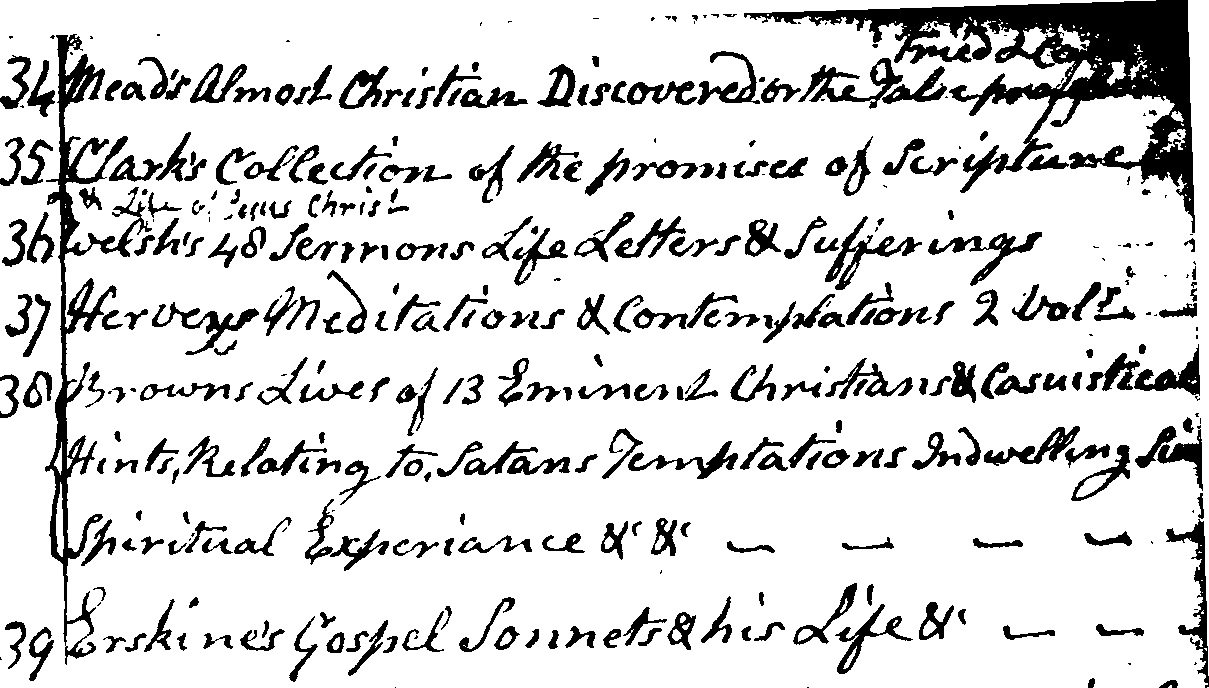 Tried &
34 Mead's Almost Christian Discovered or the False professor
35 Clark's Collection of the promises of Scripture
& Life of Jesus Christ
36 Welsh's 48 Sermons Life Letters & Sufferings
37 Herveys Meditations & Contemplations 2 Vols. —
38 Browns Lives of 13 Eminent Christians & Casuistical
Hints, Relating to, Satans Temptations Indwelling Sin
Spiritual Experiance &c &c — — — — —
39 Erskine's Gospel Sonnets & his Life &c — — —